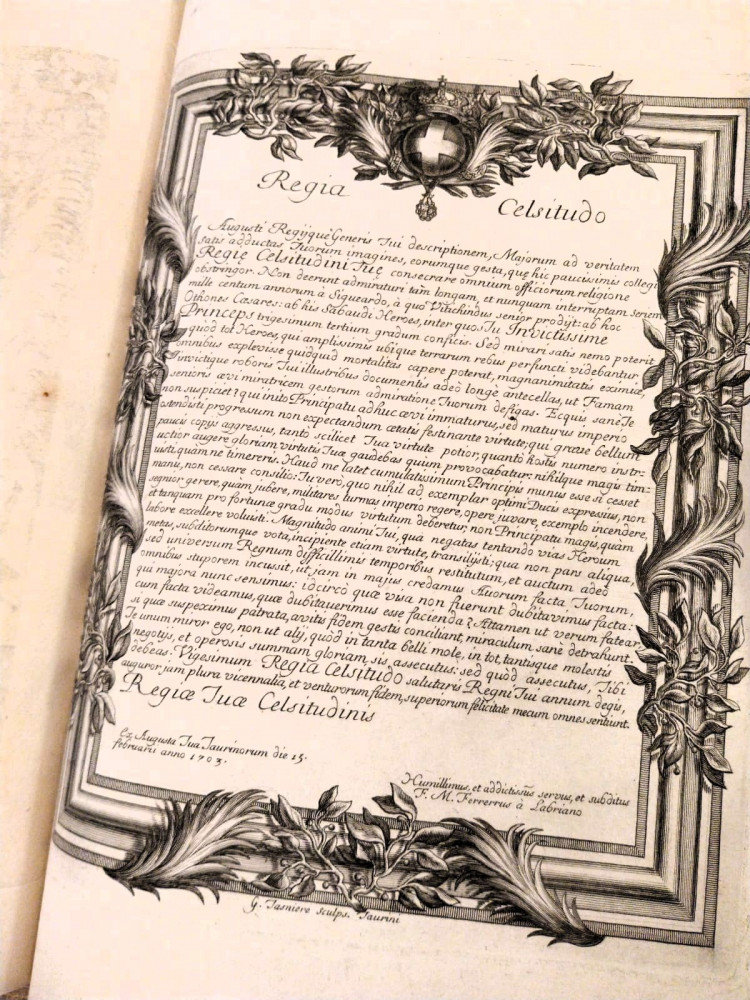 Regia Celsitudo
Augusti Regijque Generis Tui descriptionem, Majorum ad veritatem
satis adductas Tuorum imagines, eorumque gesta, quę hic paucissimis collegi
Regię Celsitudini Tuę consecrare omnium officiorum religione
obstringor. Non deerunt admiraturi tam longam, et nunquam interruptam seriem
mille centum annorum à Sigueardo, à quo Vitichindus senior prodijt: ab hoc
Othones Cæsares: ab his Sabaudi Heroes, inter quos Tu Invictissime
Princeps trigesimum tertium gradum conficis. Sed mirari satis nemo poterit
quod tot Heroes, qui amplissimis ubique terrarum rebus perfuncti videbantur
omnibus explevisse quidquid mortalitas capere poterat, magnanimitatis eximiæ,
Invictique roboris Tui illustribus documentis adeò longè antecellas, ut Famam
senioris ævi miratricem gestorum admiratione Tuorum defigas. Ecquis sanè Te
non suspiciet? qui inito Principatu adhuc ævi immaturus, sed maturus imperio
ostendisti progressum non expectandum ætatis festinante virtute; qui grave bellum
paucis copijs aggressus, tanto scilicet Tua virtute potior, quantò hostis numero instr:
uctior augere gloriam virtutis Tuæ gaudebas quùm provocabatur; nihilque magis tim:
uisti, quàm ne timereris. Haud me latet cumulatissimum Principis munus esse si cesset
manu, non cessare consilio: Tu verò, quo nihil ad exemplar optimi Ducis expressius, non
segnior gerere, quàm jubere, militares turmas imperio regere, opere juvare, exemplo incendere,
et tanquam pro fortunæ gradu modus virtutum deberetur, non Principatu magis, quàm
labore excellere voluisti. Magnitudo animi Tui, qua negatas tentando vias Heroum
metas, subditorumque vota, incipiente etiam virtute, transilijsti; qua non pars aliqua,
sed universum Regnum difficillimis temporibus restitutum, et auctum adeò
omnibus stuporem incussit, ut jam in majus credamus Avorum facta Tuorum,
qui majora nunc sensimus: idcircò quæ visa non fuerunt dubitavimus facta:
cum facta videamus, quæ dubitaverimus esse facienda? Attamen ut verum fatear,
si quæ suspeximus patrata, avitis fidem gestis conciliant, miraculum sanè detrahunt.
Te unum miror ego, non ut alij, quòd in tanta belli mole, in tot, tantisque molestis
negotijs, et operosis summam gloriam sis assecutus: sed quòd assecutus, Tibi
debeas. Vigesimum Regia Celsitudo salutaris Regni Tui annum degis,
auguror jam plura vicennalia, et venturorum fidem, superiorum felicitate mecum omnes sentiunt.
Regiæ Tuæ Celsitudinis
Ex Augusta Tua Taurinorum die 15.
februarii anno 1703.
Humillimus, et addictissūs servus, et subditus
F. M. Ferrerus à Labriano
G. Tasniere sculps. Taurini